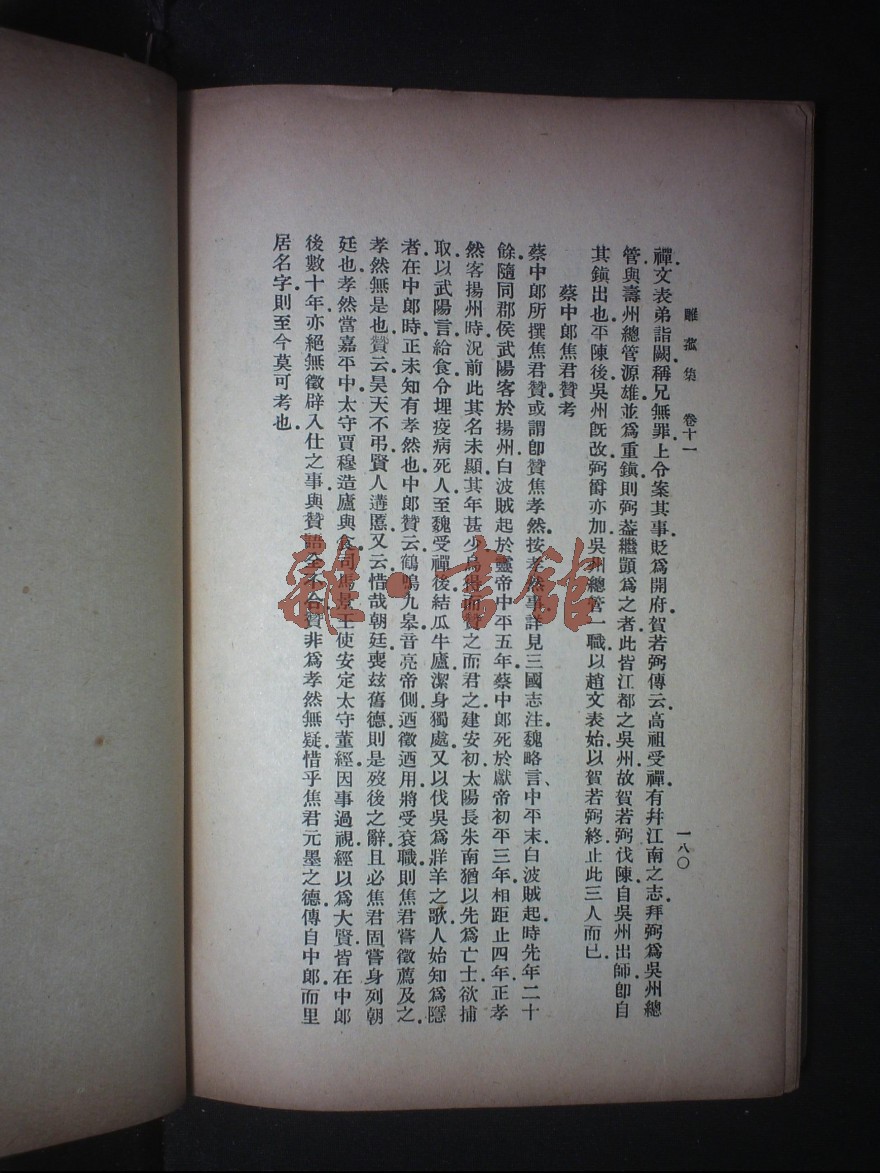 雕菰集　卷十一
一八〇
禪文表弟詣闕稱兄無罪上令案其事貶爲開府賀若弼傳云高祖受禪有幷江南之志拜弼爲吳州總
管與壽州總管源雄並爲重鎭則弼葢繼顗爲之者此皆江都之吳州故賀若弼伐陳自吳州出師卽自
其鎭出也平陳後吳州旣改弼爵亦加吳州總管一職以趙文表始以賀若弼終止此三人而已
蔡中郎焦君贊考
蔡中郎所撰焦君贊或謂卽贊焦孝然按孝然事詳見三國志注魏略言中平末白波賊起時先年二十
餘隨同郡侯武陽客於揚州白波賊起於靈帝中平五年蔡中郎死於獻帝初平三年相距止四年正孝
然客揚州時況前此其名未顯其年甚少烏得而贊之而君之建安初太陽長朱南猶以先爲亡士欲捕
取以武陽言給食令埋疫病死人至魏受禪後結瓜牛廬潔身獨處又以伐吳爲牂羊之歌人始知爲隱
者在中郎時正未知有孝然也中郎贊云鶴鳴九皋音亮帝側迺徵迺用將受袞職則焦君嘗徵薦及之
孝然無是也贊云昊天不弔賢人遘慝又云惜哉朝廷喪玆舊德則是歿後之辭且必焦君固嘗身列朝
廷也孝然當嘉平中太守賈穆造廬與食司馬景王使安定太守董經因事過視經以爲大賢皆在中郎
後數十年亦絕無徵辟入仕之事與贊語全不合贊非爲孝然無疑惜乎焦君元墨之德傳自中郎而里
居名字則至今莫可考也
雜·書館